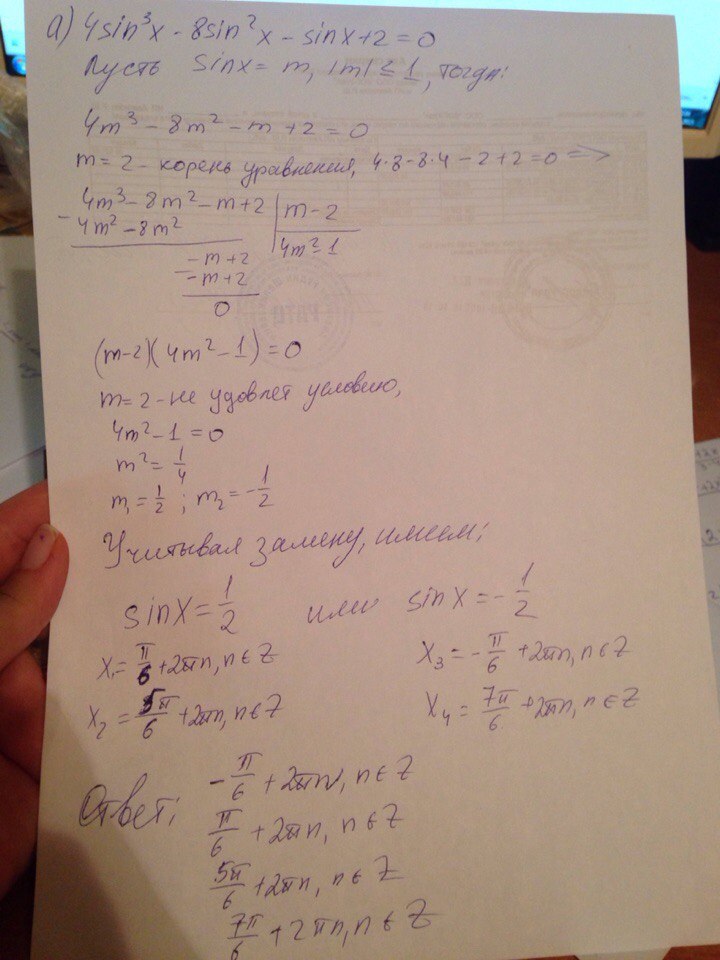 а) 4sin³x - 8sin²x - sinx + 2 = 0
Пусть sinx = m, |m| ≤ 1, тогда:
4m³ - 8m² - m + 2 = 0
m = 2 - корень уравнения, 4·8 - 8·4 - 2 + 2 = 0 =>
4m³ - 8m² - m + 2 | m - 2
- 4m² - 8m² | 4m² - 1
- m + 2
- - m + 2
0
(m-2)(4m² - 1) = 0
m = 2 - не удовлет условию,
4m² - 1 = 0
m² = 1/4
m₁ = 1/2 ; m₂ = - 1/2
Учитывая замену, имеем:
sinx = 1/2 или sinx = - 1/2
x₁ = π/6 + 2πn, n ∈ Z x₃ = - π/6 + 2πn, n ∈ Z
x₂ = 5π/6 + 2πn, n ∈ Z x₄ = 7π/6 + 2πn, n ∈ Z
Ответ: - π/6 + 2πn, n ∈ Z
π/6 + 2πn, n ∈ Z
5π/6 + 2πn, n ∈ Z
7π/6 + 2πn, n ∈ Z